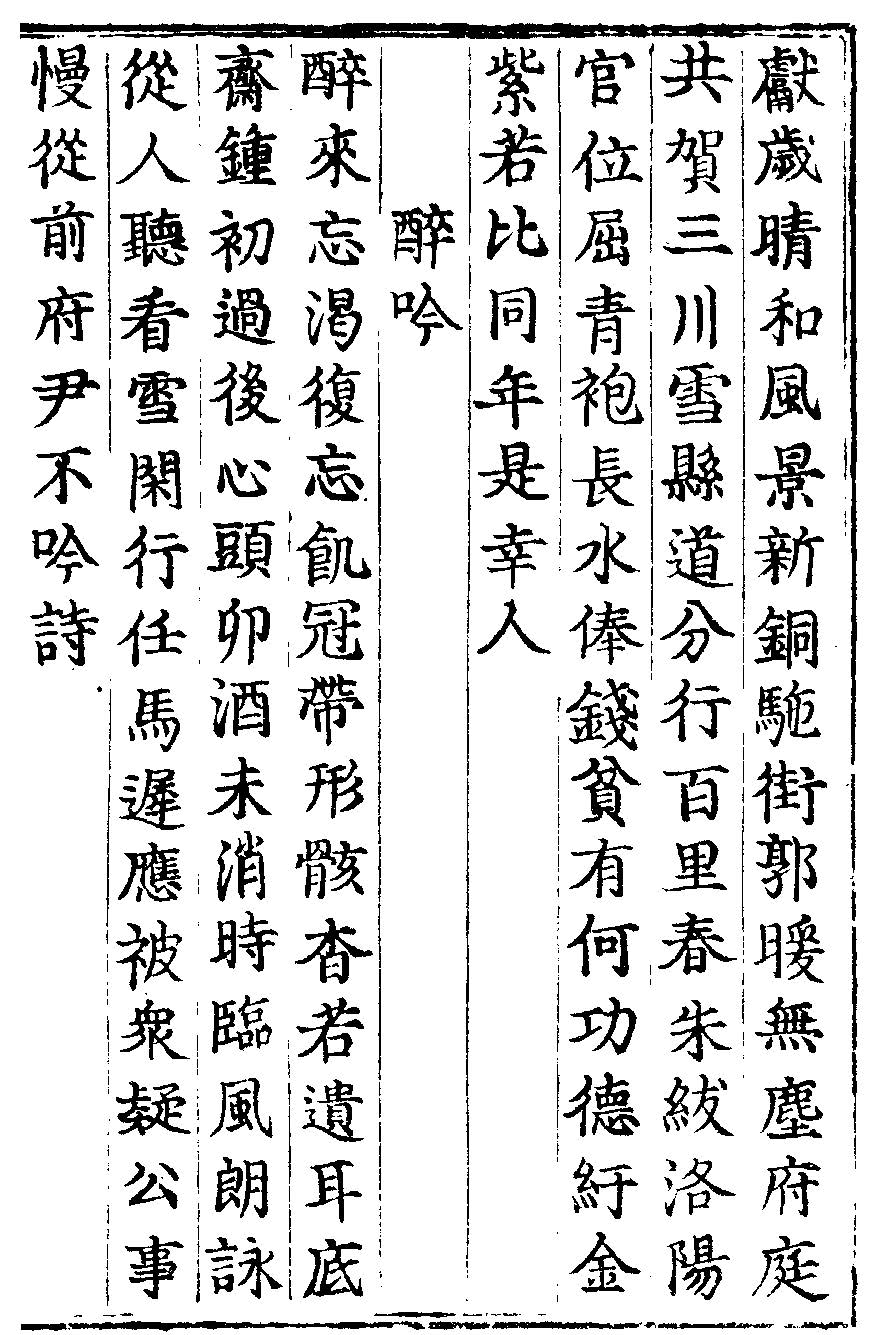 獻歲晴和風景新銅駞街郭暖無塵府庭
共賀三川雪縣道分行百里春朱紱洛陽
官位屈青袍長水俸錢貧有何功德紆金
紫若比同年是幸人
醉吟
醉來忘渴復忘飢冠帶形骸杳若遺耳底
齋鍾初過後心頭卯酒未消時臨風朗詠
從人聽看雪閑行任馬遲應被衆疑公事
慢從前府尹不吟詩